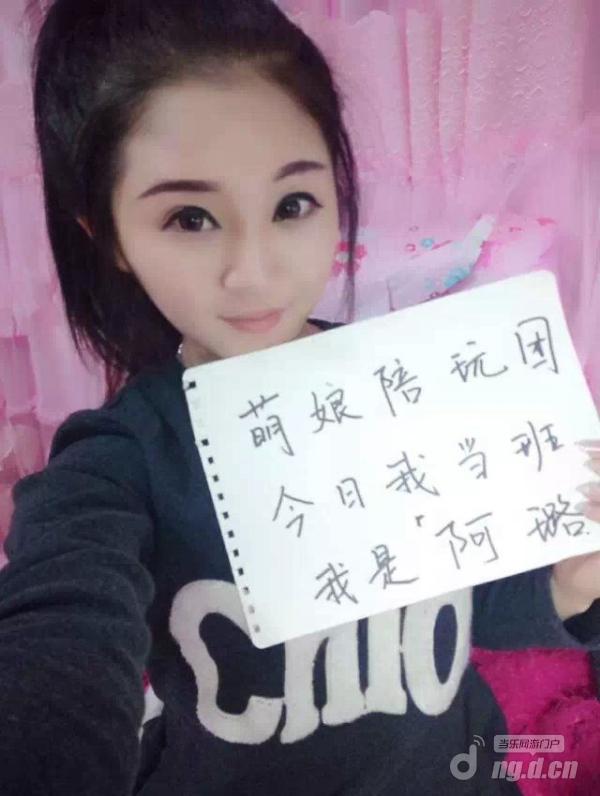 萌娘陪玩团
今日我当班
我是"阿璐
CHIC
当乐网游门户
d ng.d.cn